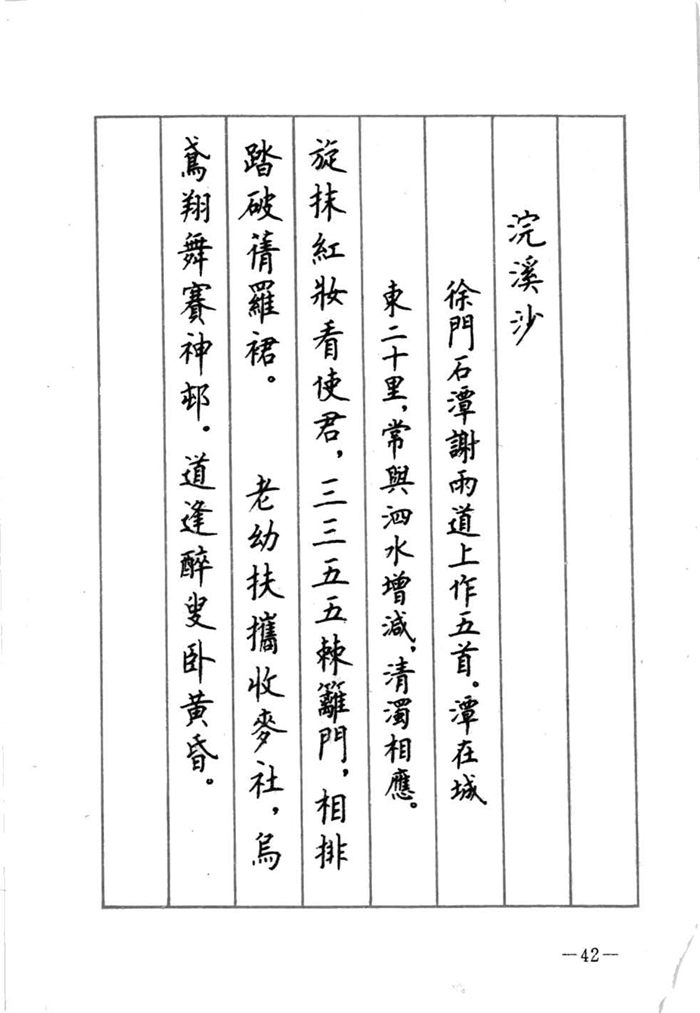 浣溪沙
徐門石潭謝雨道上作五首。潭在城
東二十里，常與泗水增減，清濁相應。
旋抹紅妝看使君，三三五五棘籬門，相排
踏破蒨羅裙。 老幼扶攜收麥社，烏
鳶翔舞賽神邨。道逢醉叟卧黄昏。
—42—